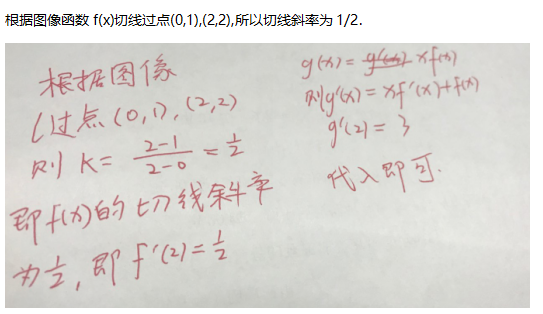 根据图像函数 f(x)切线过点(0,1),(2,2),所以切线斜率为 1/2.
根据图像
l过点(0,1),(2,2)
则 K= 2-1/2-0 = 1/2
即f(x)的切线斜率
为1/2,即f'(2)=1/2
g(x)= xf(x)
则g'(x)=xf'(x)+f(x)
g'(2)=3
代入即可.